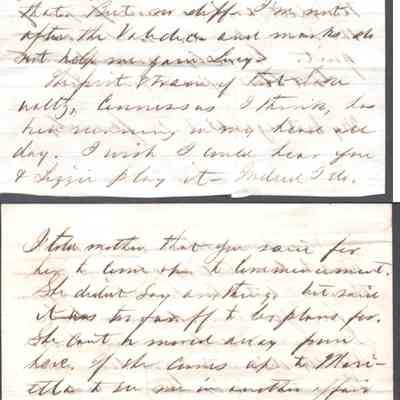 that. But no diff. I'm not
after the Valedic. and marks do
not help me gain Lucy.
Surprist Strain of
waltz, Cennessas I think, has
been running in my head all
day. I wish I could hear you
& Lizzie play it - Indeed I do.
I told mother that you said for
her to come up to Commencement.
She didn't say anything, but said
it was too far off to lay plans for.
She can't be moved away from
here. If she comes up to Mari-
etta to see me in another affair